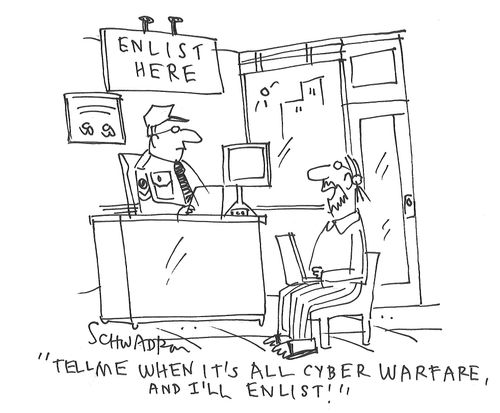 ENLIST
HERE
SCHWADRON
"TELL ME WHEN IT'S ALL CYBER WARFARE,
AND I'LL ENLIST!"